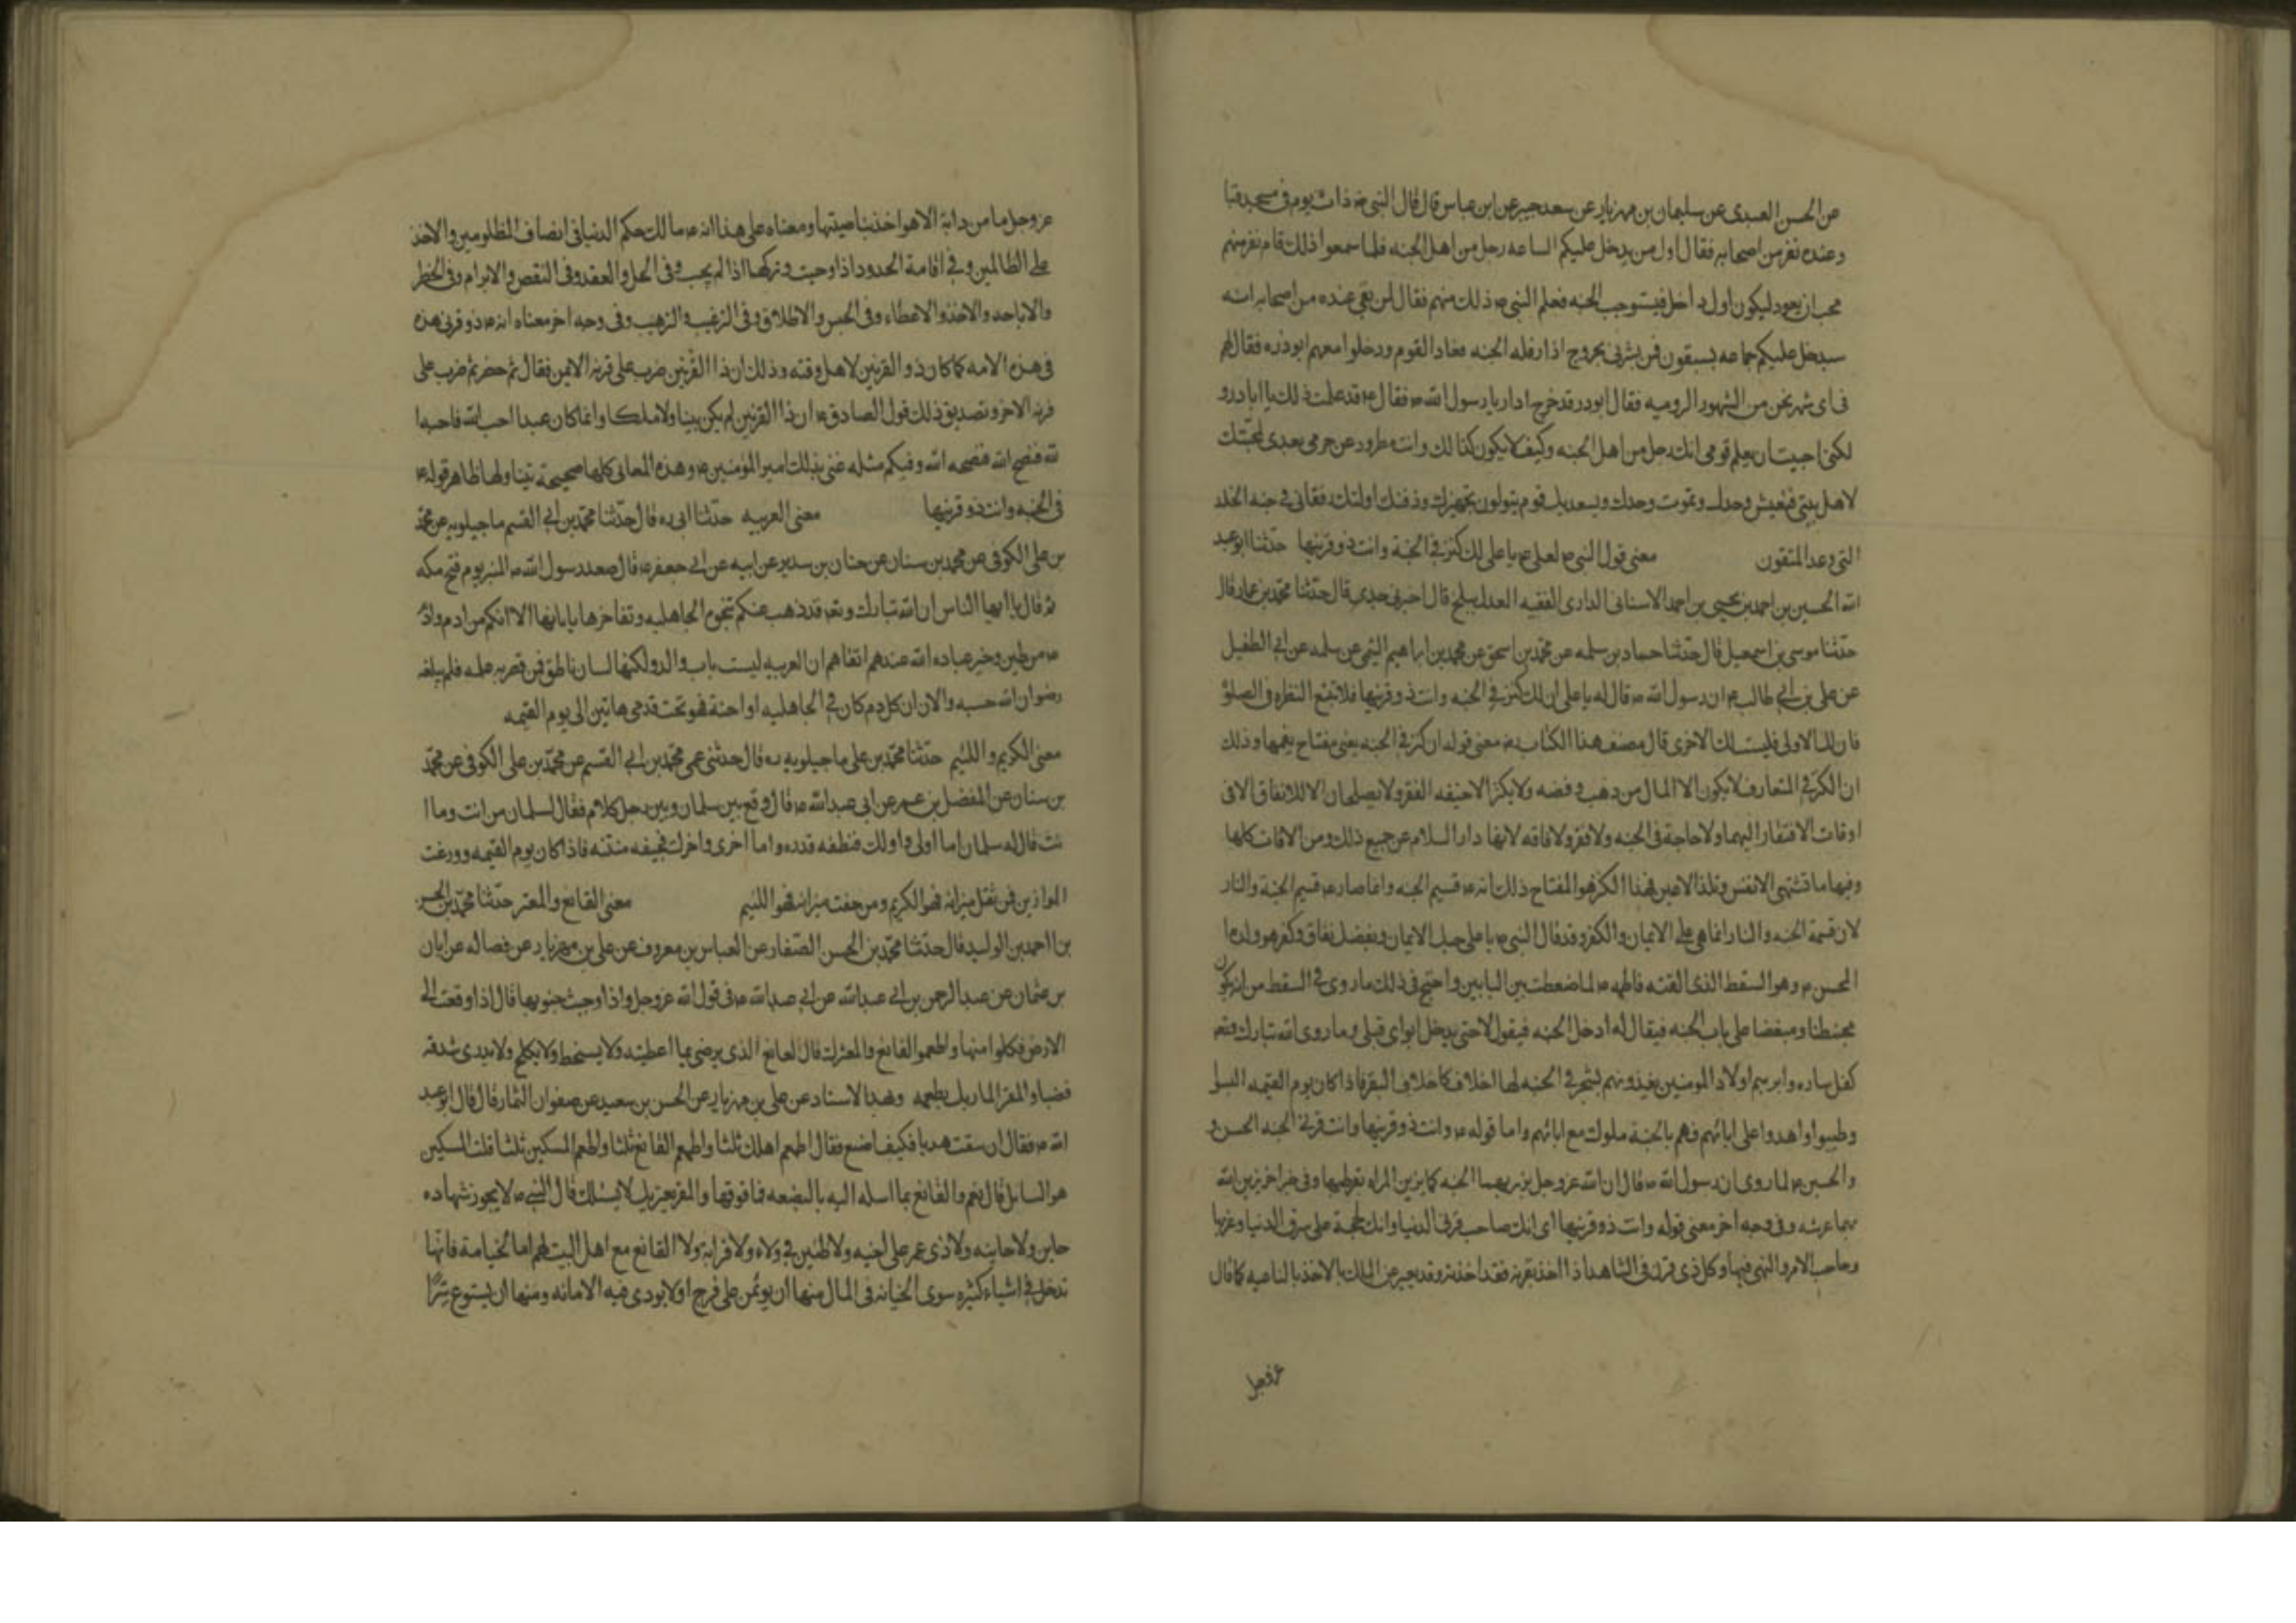 عن الحسن العبدى عن سليمان بن مهزيار عن سعد جبير عن ابن عباس قال قال النبى ص ذات يوم فى مسجد قبا
وعنده نفر من اصحابه فقال اول من يدخل عليكم الساعه رجل من اهل الجنه فلما سمعوا ذلك قام نفر منهم
محب ان يعود ليكون اول داخل فيستوجب الجنه فعلم النبى ص ذلك منهم فقال لمن بقى عنده من اصحابه انه
سيدخل عليكم جماعه يسبقون فمن بشرنى بخروج اذار فله الجنه فعاد القوم ودخلوا معهم ابوذر ره فقال لهم
فى اى شهر نحن من الشهور الروميه فقال ابودر قد خرج ادار يا رسول الله ص فقال ص قد علمت ذلك يا ابا درو
لكنى احببت ان يعلم قومى انك رجل من اهل الجنه وكيف لا يكون كذالك وانت مطرود عن حرمى بعدى لمحبتك
لاهل بيتى فتعيش وحدك وتموت وحدك ويسعد بك قوم يتولون تجهيزك ودفنك اولئك رفقائى فى جنه الخلد
التى وعد المتقون معنى قول النبى ص لعلى ع يا على لك كنز فى الجنة وانت ذو قرنيها حدثنا ابو عبد
الله الحسين بن احمد بن يحيى بن احمد الاسنانى الدارى الفقيه العدل ببلخ قال اخبرنى جدى قال حدثنا محمد بن عمار قال
حدثنا موسى بن اسمعيل قال حدثنا حماد بن سلمه عن محمد بن اسحق عن محمد بن ابراهيم التيمى عن سلمه عن ابى الطفيل
عن على بن ابى طالب ع ان رسول الله ص قال له يا على ان لك كنز فى الجنه وانت ذو قرنيها فلا تتبع النظره فى الصلوة
فان لك الاولى فليست لك الاخرى قال مصنف هذا الكتاب ره معنى قوله ان كنز فى الجنه يعنى مفتاح نعيمها وذلك
ان الكنز فى المتعارف لا يكون الا المال من ذهب وفضه ولا يكنز الا خيفه الفقر ولا يصلحان الا للانفاق الا فى
اوقات الافتقار اليهما ولا حاجة فى الجنه ولا فقر ولا فاقه لانها دار السلام عن جميع ذلك ومن الافات كلها
وفيها ما تشتهى الانفس وتلذ الاعين فهذا الكنز هو المفتاح ذلك انه ع قسيم الجنه وانما صار ع قسيم الجنة والنار
لان قسمة الجنه والنار انما هى على الايمان والكفر وقد قال النبى ص يا على حبك الايمان وبغضك نفاق وكفر هو ولدها
المحسن ع وهو السقط الذى القته فاطمه ع لما ضغطت بين البابين واحتج فى ذلك ما روى فى السقط من انه يكون
محبنطا ومبغضا على باب الجنه فيقال له ادخل الجنه فيقول لا حتى يدخل ابواى قبلى وما روى الله تبارك وتعه
كفل ساره وابرهيم اولاد المومنين يغذونهم بشجر فى الجنه لها اخلاف كاخلاف البقر فاذا كان يوم القيمه البسوا
وطيبوا واهدوا على ابائهم فهم بالجنة ملوك مع ابائهم واما قوله ع وانت ذو قرنيها وانت قرنى الجنه الحسن و
والحسين ع لما روى ان رسول الله ص قال ان الله عز وجل يزين بهما الجنه كما يزين المراه بقرطيها وفى خبر اخر يزين الله
بهما عرشه وفى وجه اخر معنى قوله وانت ذو قرنيها اى انك صاحب قرنى الدنيا وانك لحجة على شرق الدنيا وغربها
وصاحب الامر والنهى فيها وكل ذى قرن فى الشاهد اذا اخذ بقرنه فقد اخذ به وقد يعبر عن الملك بالاخذ بالناصيه كما قال
عز وجل
عز وجل ما من دابة الا هو اخذ بناصيتها ومعناه على هذا انه ع مالك حكم الدنيا فى انصاف المظلومين والاخذ
على الظالمين وفى اقامة الحدود اذا وجبت وتركها اذا لم يجب وفى الحل والعقد وفى النقض والابرام وفى الحظر
والاباحه والاخذ والاعطاء وفى الحبس والاطلاق وفى الترغيب والترهيب وفى وجه اخر معناه انه ع ذو قرنى هذه
فى هذه الامه كما كان ذو القرنين لاهل وقته وذلك ان ذا القرنين ضرب على قرنه الايمن فقال ثم حضر ثم ضرب على
قرنه الاخر وتصديق ذلك قول الصادق ع ان ذا القرنين لم يكن نبيا ولا ملكا وانما كان عبدا احب الله فاحبه ا
لله فنصح الله فنصحه الله وفيكم مثله عنى بذلك امير المؤمنين ع وهذه المعانى كلها صحيحة يتناولها ظاهر قوله ع
فى الجنه وانت ذو قرنيها معنى العربيه حدثنا ابى ره قال حدثنا محمد بن ابى القسم ماجيلويه عن محمد
بن على الكوفى عن محمد بن سنان عن حنان بن سدير عن ابيه عن ابى جعفر ع قال صعد رسول الله ص المنبر يوم فتح مكه
ثم قال يا ايها الناس ان الله تبارك وتعه قد ذهب عنكم بنخوة الجاهليه وتفاخرها بابائها الا انكم من ادم وادم
ع من طين وخير عباده الله عندهم اتقاهم ان العربيه ليست باب والد ولكنها لسان ناطق فمن قصر به عمله فلم يبلغه
رضوان الله حسبه والا ان كل دم كان فى الجاهليه او احنة فهو تحت قدمى هاتين الى يوم القيمه
معنى الكريم واللئيم حدثنا محمد بن على ماجيلويه ره قال حدثنى عمى محمد بن ابى القسم عن محمد بن على الكوفى عن محمد
بن سنان عن المفضل بن عمر عن ابى عبد الله ع قال وقع بين سلمان وبين رجل كلام فقال لسلمان من انت وما ا
نت فقال له سلمان اما اولى واولك فنطفه قذره واما اخرى واخرك فجيفه منتنه فاذا كان يوم القيمه ووزنت
الموازين فمن ثقل ميزانه فهو الكريم ومن خفت ميزانه فهو اللئيم معنى القانع والمعتر حدثنا محمد بن الحسن
بن احمد بن الوليد قال حدثنا محمد بن الحسن الصفار عن العباس بن معروف عن على بن مهزيار عن فضاله عن ابان
بن عثمان عن عبد الرحمن بن ابى عبدالله عن ابى عبدالله ع فى قول الله عز وجل واذا وجبت جنوبها قال اذا وقعت الى
الارض فكلوا منها واطعموا القانع والمعتر قال القانع الذى يرضى بما اعطيته ولا يسخط ولا يكلح ولا يزبد شدقه
غضبا والمعتر المار بك يطعمه وبهذا الاسناد عن على بن مهزيار عن الحسن بن سعيد عن صفوان التمار قال قال ابو عبد
الله ع فقال ان سقت هديا فكيف اصنع فقال اطعم اهلك ثلثا واطعم القانع ثلثا واطعم المسكين ثلثا قلت المسكين
هو السايل قال نعم والقانع بما ارسله اليه بالبضعه فما فوقها والمعتر يعتريك لا يسئلك قال النبى ص لا يجوز شهاده
خاين ولا خاينه ولا ذى غمر على اخيه ولا ظنين فى ولاء ولا قرابة ولا القانع مع اهل البيت لهم اما الخيانة فانها
تدخل فى اشياء كثيره سوى الخيانه فى المال منها ان يوتمن على فرج اولا يودى فيه الامانه ومنها ان يستودع سرًّا